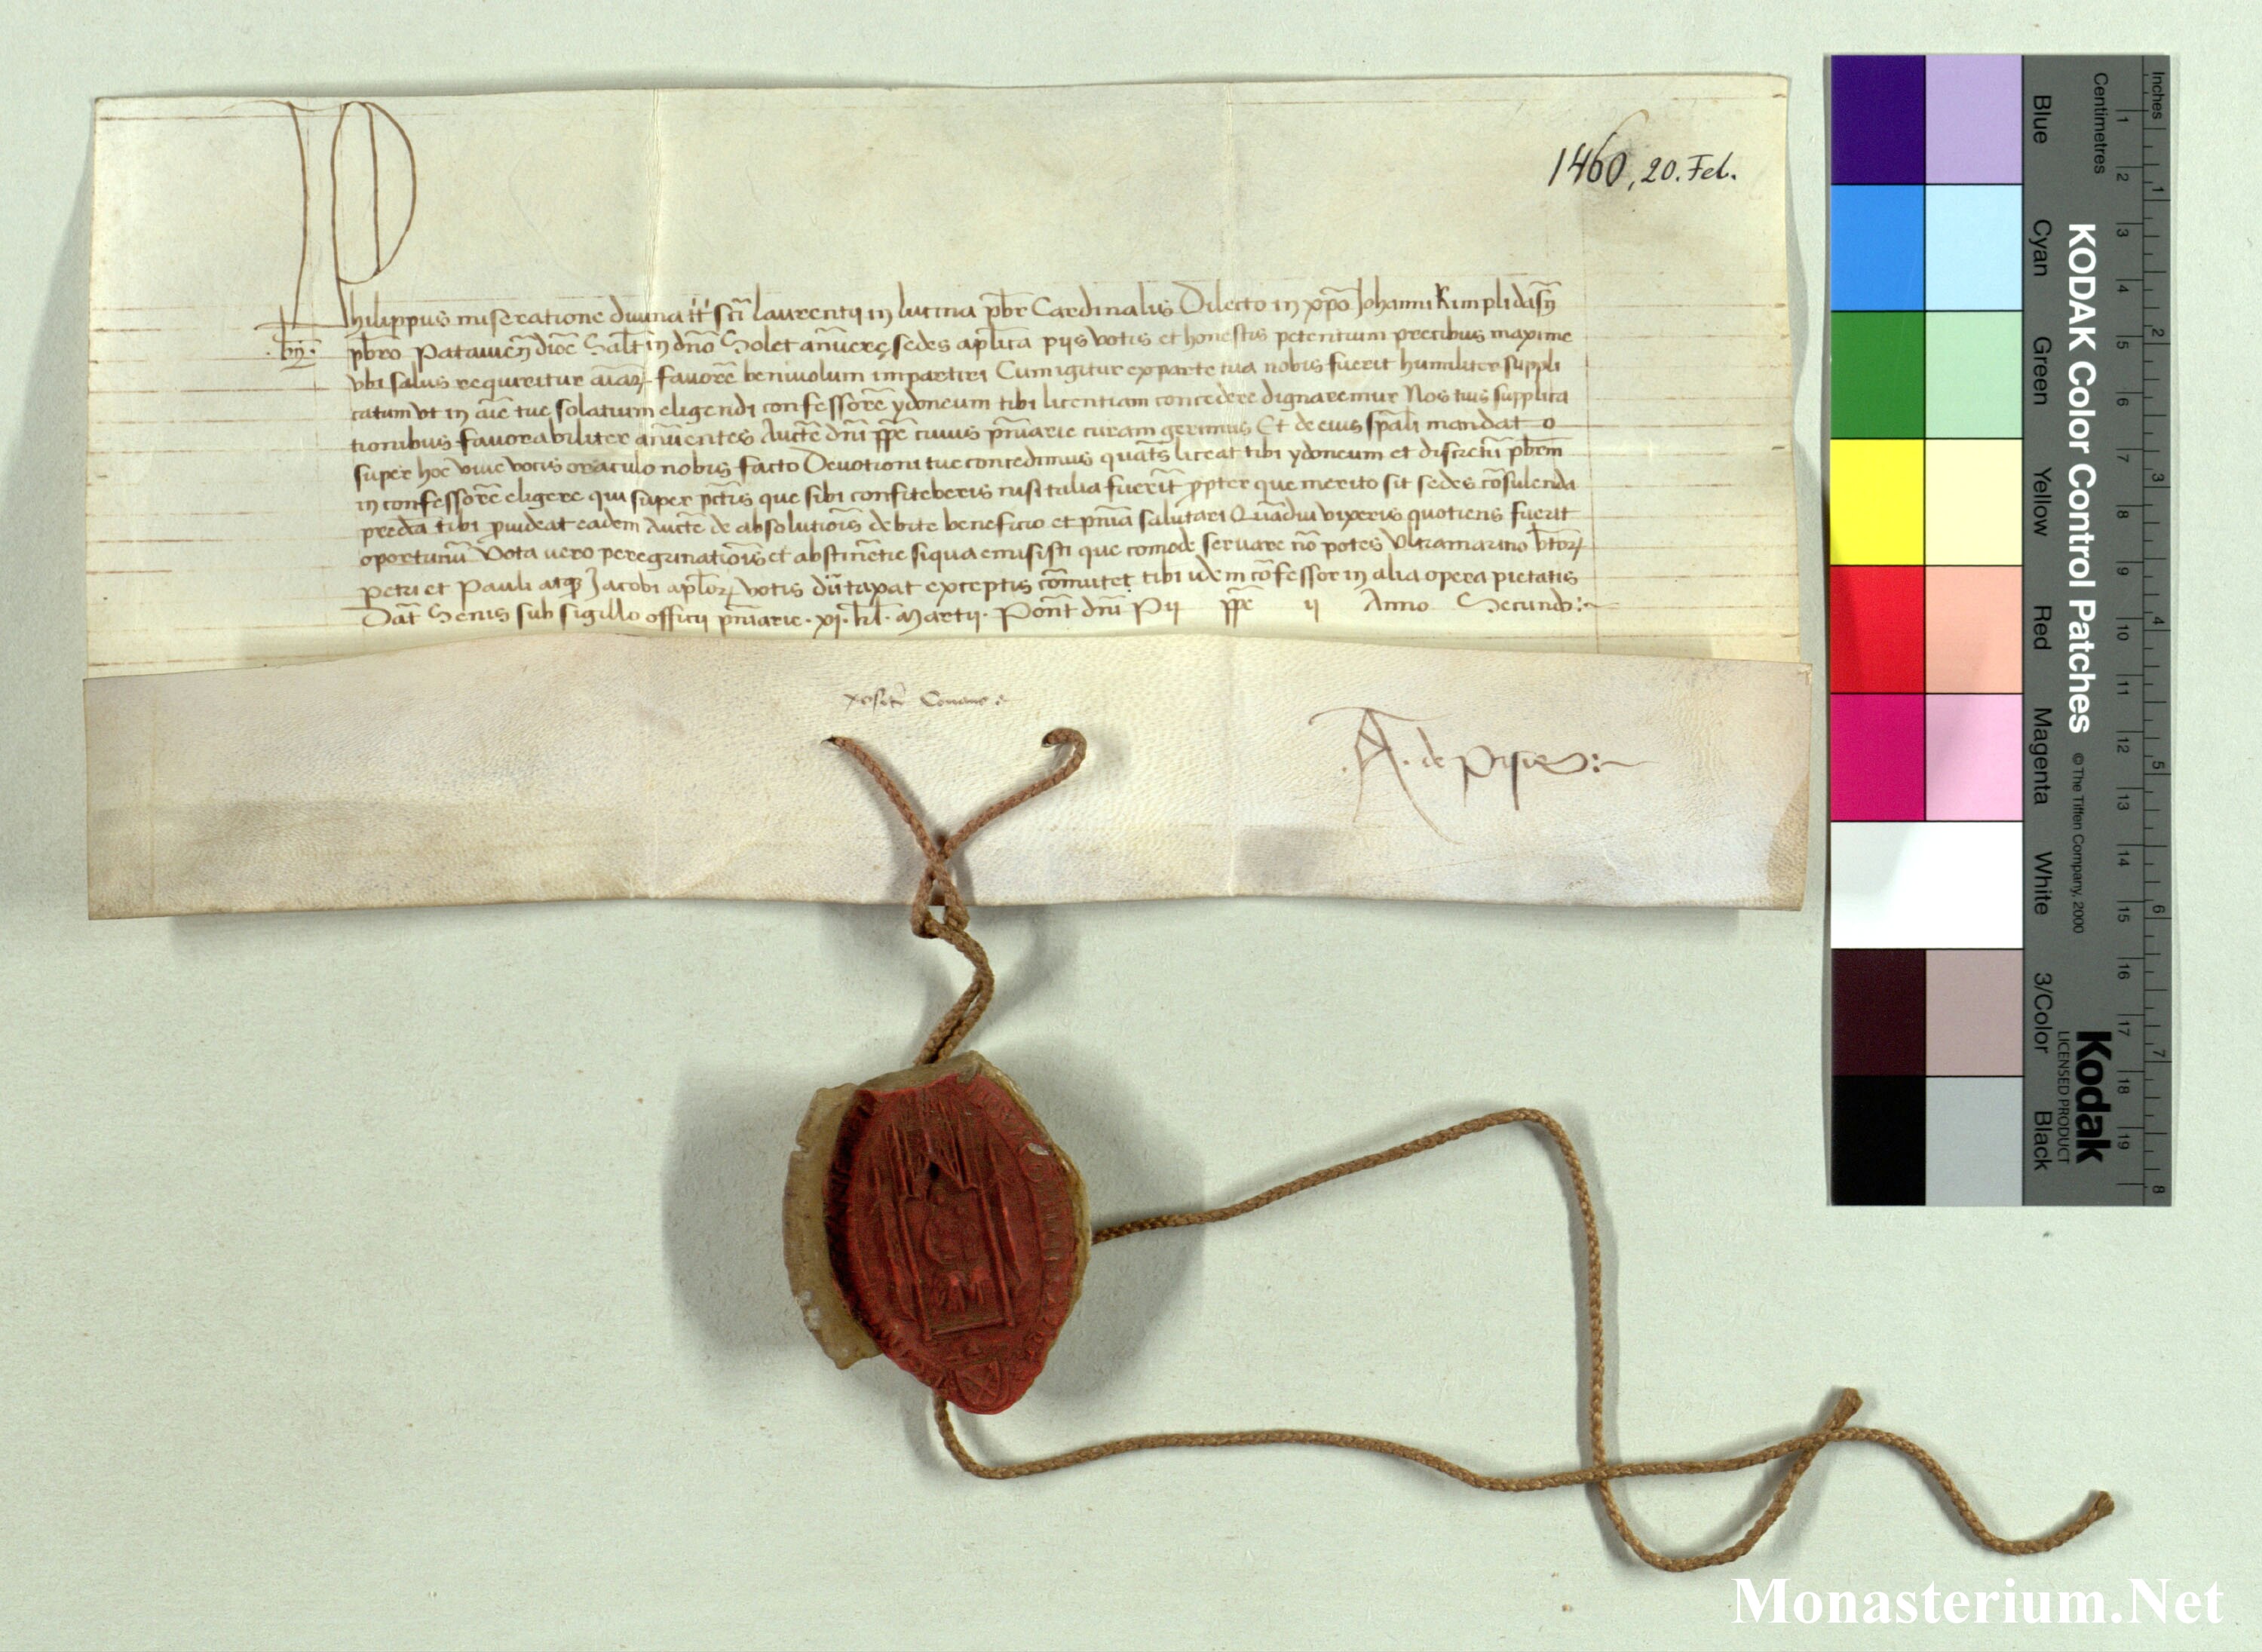 1460, 20. Feb.
Philippus miseratione divina tt̄ scī laurentij in lucina pb̄r Cardinalis Dilecto in xp̄o Johanni Kimplidasn̄
.bn̄. pb̄ro Patauien̄ dioc̄ Sal̄t in dn̄o Solet an̄uere sedes ap̄lica pijs votis et honestis petentium precibus maxime
vbi salus requiritur aīaꝝ fauorē beniuolum impartiri Cum igitur ex parte tua nobis fuerit humiliter suppli
catum vt in aīe tue solatium eligendi confessorē ydoneum tibi licentiam concedere dignaremur Nos tuis supplica
tionibus fauorabiliter an̄uentes Auctē dn̄i pp̄e cuius pn̄iarie curam gerimus Et de eius sp̄ali mandato
super hoc viue vocis oraculo nobis facto Deuotioni tue concedimus quat̄s liceat tibi ydoneum et discretū pb̄rm
in confessorē eligere qui super pctīs que sibi confiteberis nisi talia fuerīt ꝓpter que merito sit sedes cōsulenda
predcā tibi ꝓuideat eadem Auctē de absolutiōis debite beneficio et pn̄ia salutari Quādiu vixeris quotiens fuerit
oportunū Vota uero peregrinatiōis et abstinētie siqua emisisti que comode seruare nō potes Vltramarino bt̄orꝝ
petri et Pauli atqꝫ Jacobi ap̄loꝝ votis dūtaxat exceptis cōmutet tibi idem cōfessor in alia opera pietatis
Dat̄ Senis sub sigillo officij pn̄iarie . xj . kl̄ . Martij . Pont̄ dn̄i Pij pp̄e ij Anno Secundo :~
.A. de Pisis :~
KODAK Color Control Patches
© The Tiffen Company, 2000
Kodak
LICENSED PRODUCT
Blue
Cyan
Green
Yellow
Red
Magenta
White
3/Color
Black
Inches
1 2 3 4 5 6 7 8
Centimetres
1 2 3 4 5 6 7 8 9 10 11 12 13 14 15 16 17 18 19
Monasterium.Net